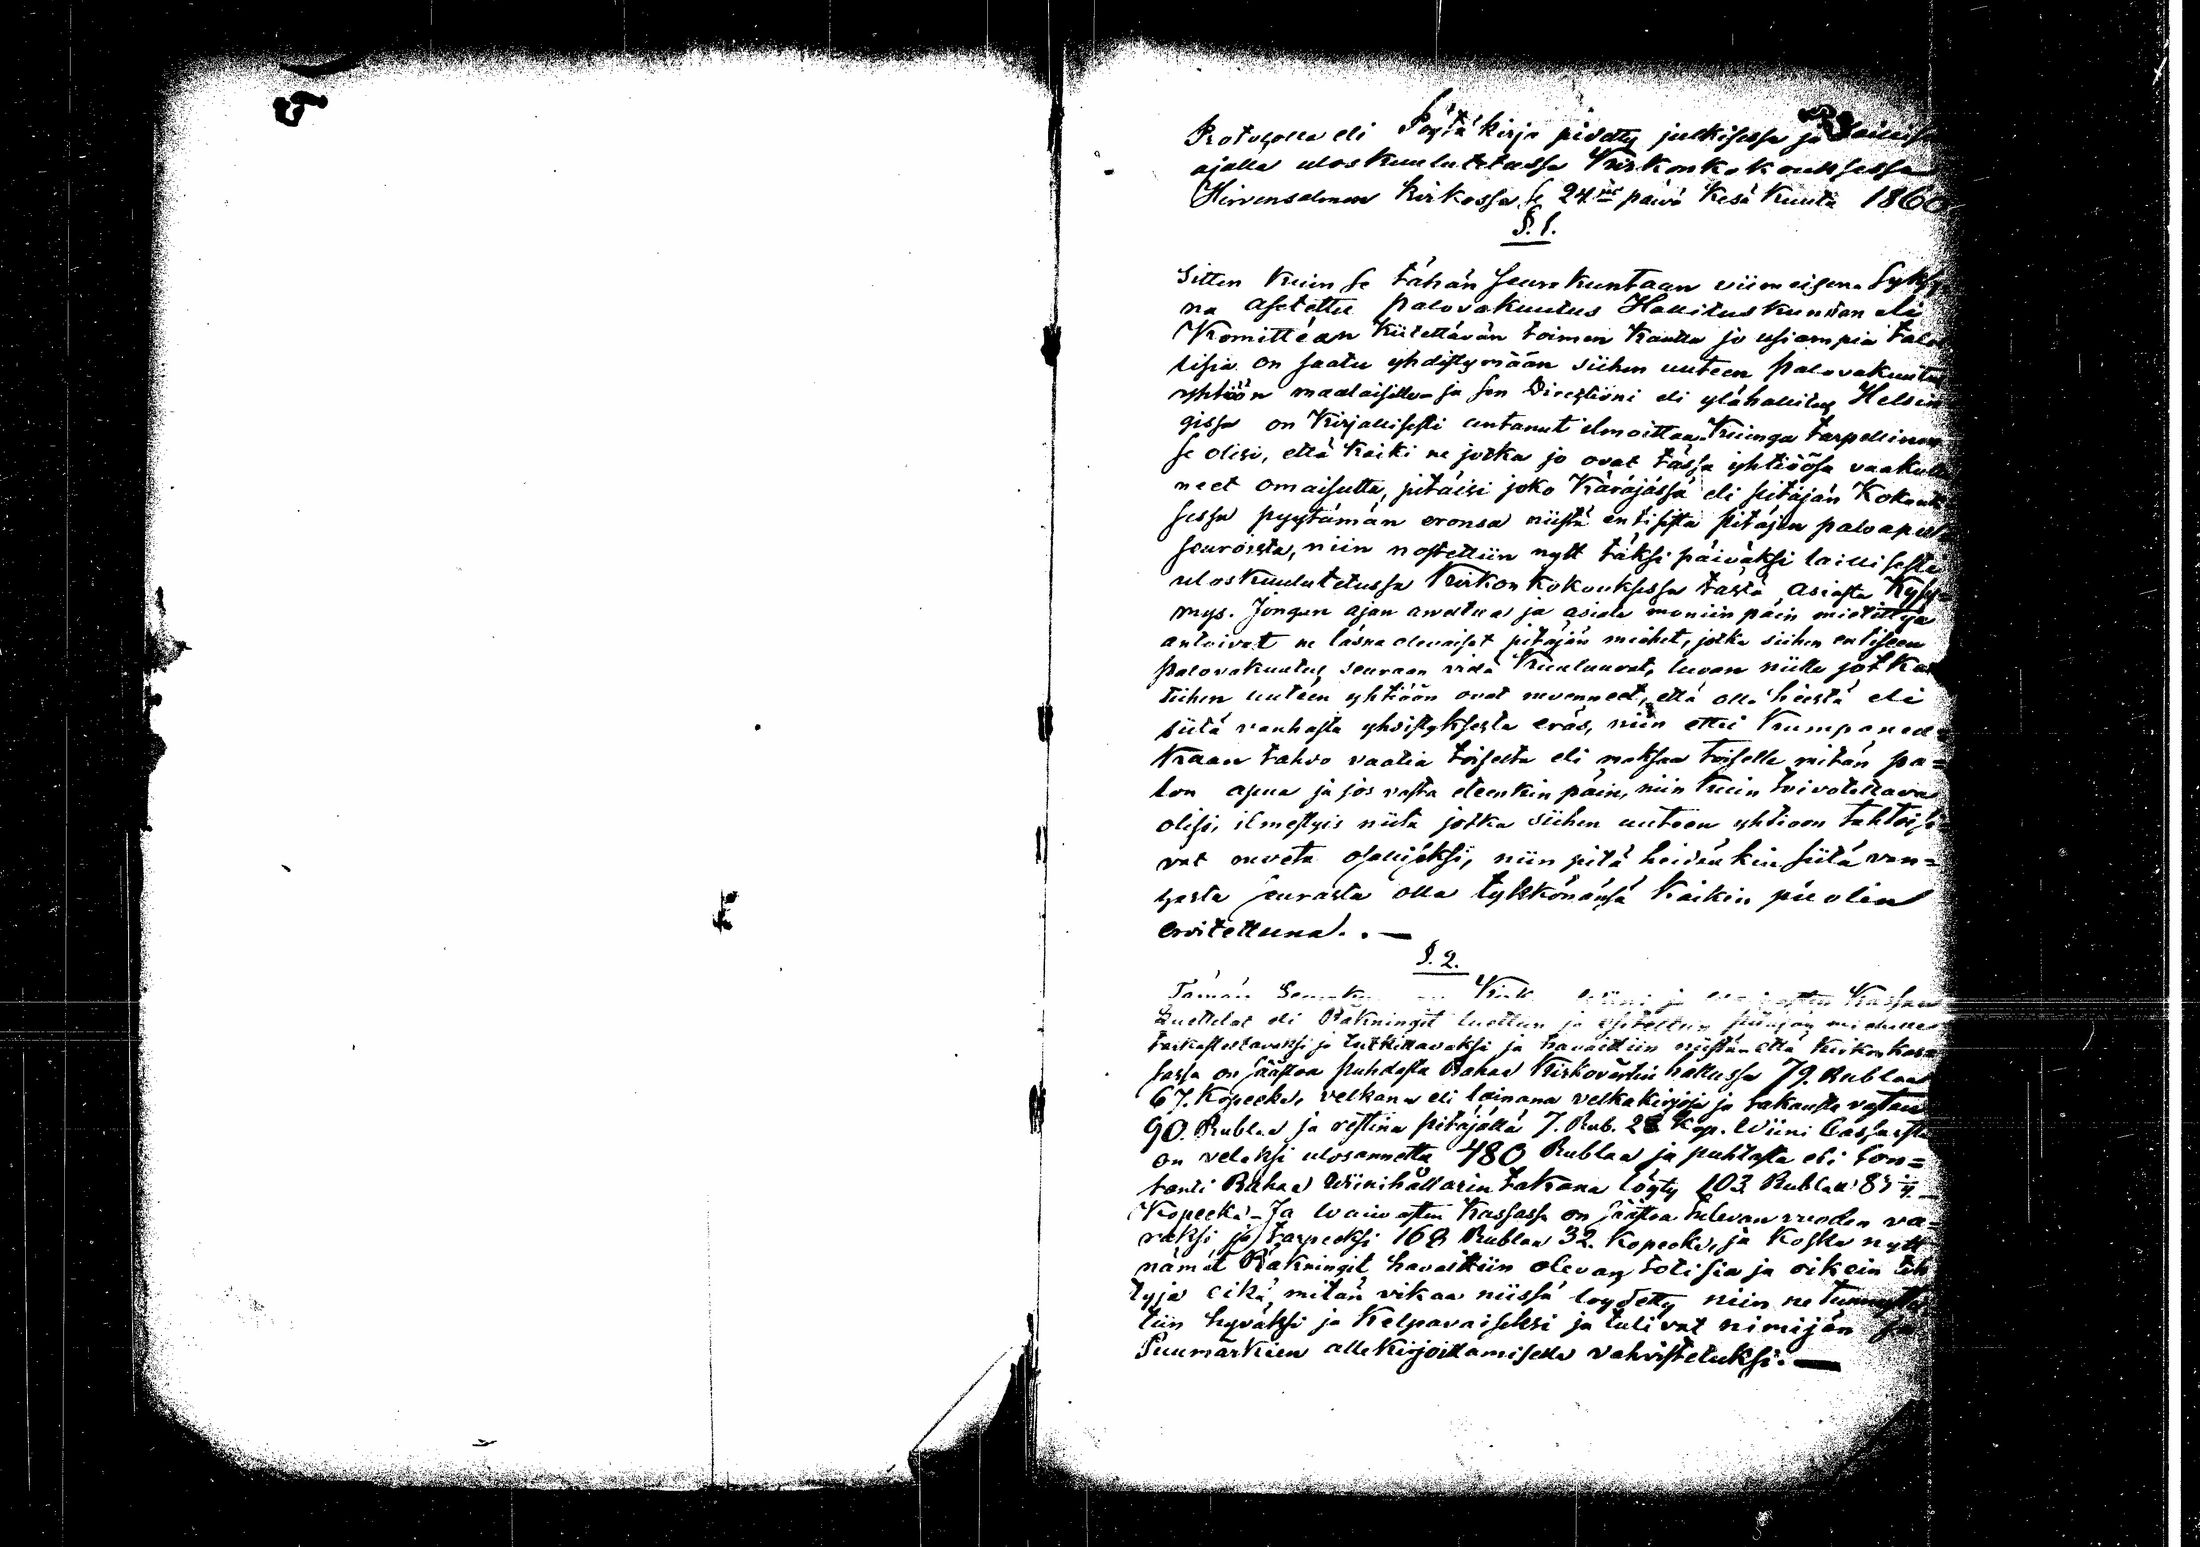 Protocolla eli Pöytäkirja pidetty julkisessa ja laillise
ajalla uloskuulutetussa Kirkonkokouksessa
Hirvensalmen kirkossa se 24:jäs päivä Kesä Kuuta 1860
§. 1.
Sitten kuin se tähän seurakuntaan viimeisenä Syksy-
nä asetettu palovakuutus Hallituskunnan eli
Komittéan kiitettävän toimen kautta jo usiampia talol
lisia on saatu yhdistymään siihen uuteen palovakuutus
yhtiöön maalaisille ja sen Directiöni eli ylähallitus Helsin
gissä on Kirjallisesti antanut ilmoittaa kuinga tarpellinen
se olisi, että kaiki ne jotka jo ovat tässä yhtiöösä vaakutta
neet omaisutta, pitäisi joko Käräjässä eli pitäjän Kokouk
sessa pyytämän eronsa niistä entisistä pitäjän paloapu
seuroista, niin nostettiin nytt täksi päiväksi laillisesti
uloskuulutetussa Kirkonkokouksessa tästä asiasta Kysy=
mys. Jongun ajan arveltua ja asiata moniin päin mietittyä
antoivat ne läsnä olevaiset pitäjän miehet, jotka siihen entiseen
palovakuutus seuraan vielä Kuuluuvat, luvan niille jotka
siihen uuteen yhtiöön ovat ruvenneet, että olla heistä eli
siitä vanhasta yhdistyksestä eräs, niin ettei Kumpaned=
kaan tahdo vaatia toiselta eli maksaa toiselle mitän pa=
lon apua ja jos vasta eteenkin päin, niin kuin toivotettava
olisi, ilmestyis niitä jotka siihen uuteen yhtiöön tahtoisi
vat ruveta osallisiksi, niin pitä heidänkin siitä van=
hasta seurasta olla tykkönänsä kaikin puolin
eroitettuna. . —
§. 2.
Tämän Seuraku Kirk Wiini ja Waivasten Kassan
Luettelot eli Räkningit luettiin ja esiteltiin pitäjän miehille
tarkasteltavaksi ja tutkittavaksi ja havaittiin niistä että Kirkon kas
sassa on säästöä puhdasta Rahaa Kirkovärtin hallussa 79. Rublaa
67. Kopeeka, velkana eli lainana velkakirjoja ja takausta vastaan
90. Rublaa ja restinä pitäjällä 7. Rub. 28 Kop. Wiini Cassasta
on velaksi ulosannettu 480 Rublaa ja puhtasta eli kon=
tanti Rahaa Wiinihållarin takana löyty 103 Rublaa 85
Kopeekä - Ja Waivasten Kassassa on säästöä tulevan vuoden va=
raksi ja tarpeeksi 168 Rublaa 32. Kopeeka, ja Koska nytt
nämät Räkningit havaittiin olevan totisia ja oikein teh
tyjä eikä mitän vikaa niissä löydetty niin ne tunnustet
tiin hyväksi ja Kelpavaiseksi ja tulivat nimijän ja
Puumärkien allekirjoittamisella vahvistetuksi. —